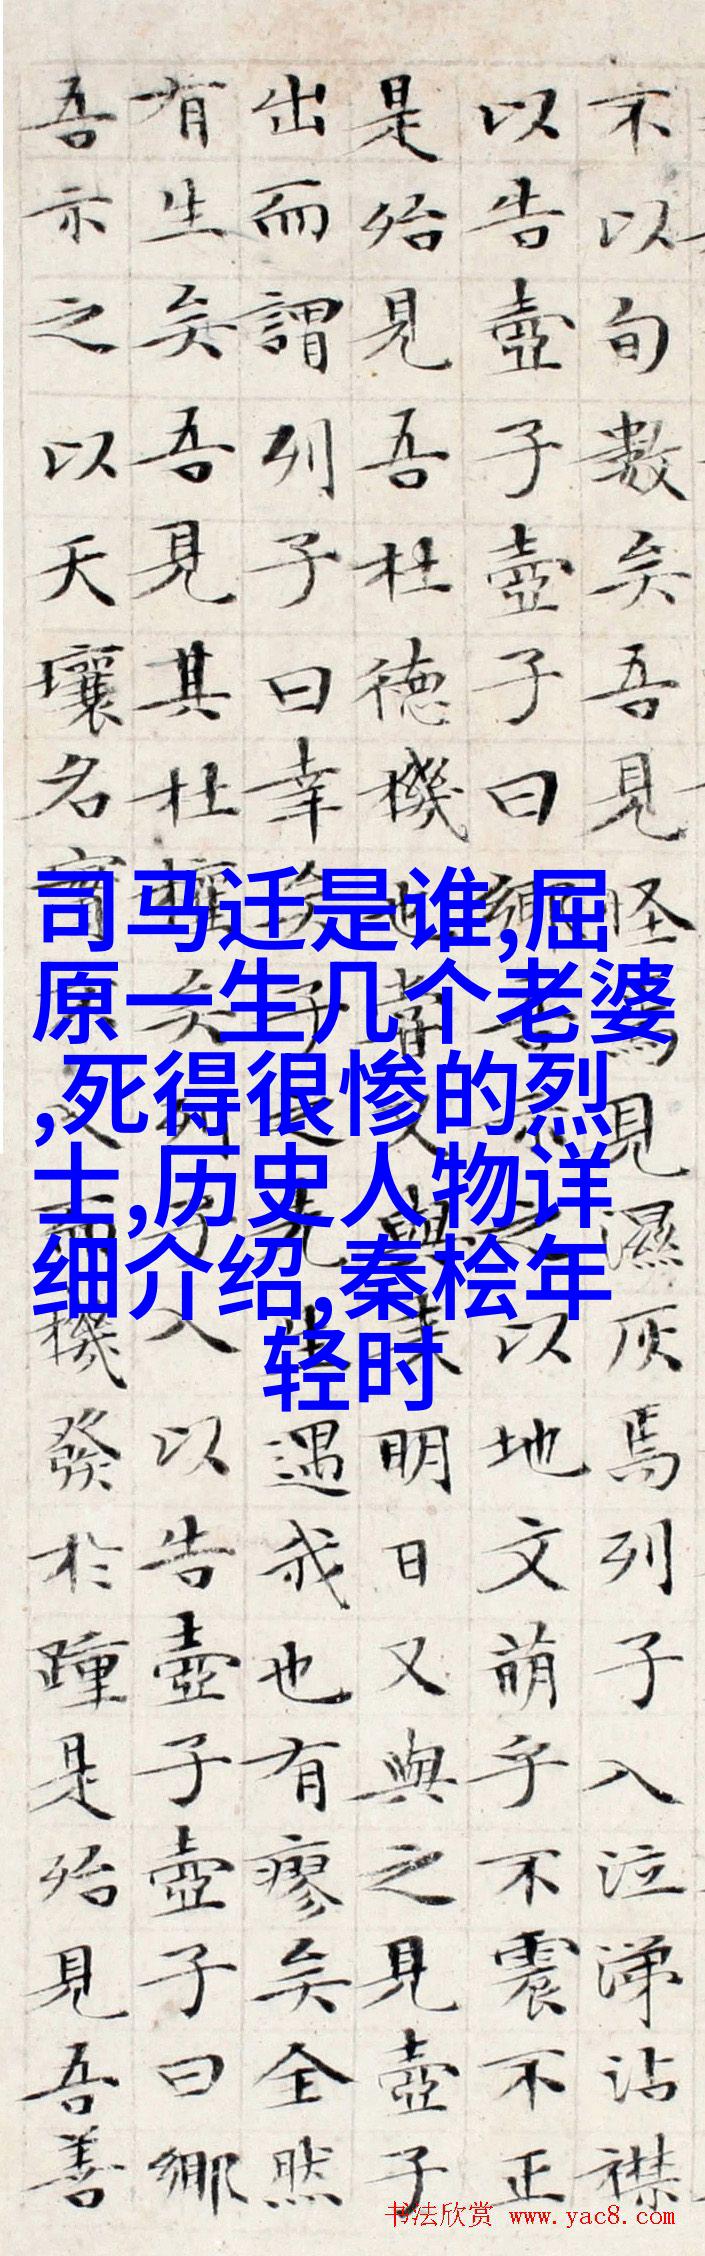 不以旬數矣吾見怪焉見濕灰焉列子入泣涕沾襟
以告壺子壺子曰鄉吾示之以地文萌乎不震不正
是殆見吾杜德機也嘗又與來明日又與之見壺子
出而謂列子曰幸矣子之先生遇我也有瘳矣全然
有生矣吾見其杜權矣列子入以告壺子壺子曰鄉
吾示之以天壤名實不入而機發於踵是殆見吾善
司马迁是谁,屈
原一生几个老婆
,死得很惨的烈
士,历史人物详
细介绍,秦桧年
轻时
书法欣赏 www.yac8.com